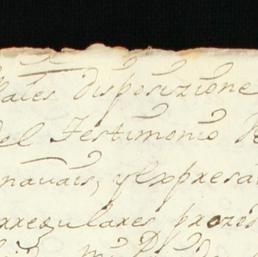 ales disposizione
del Testimonio Re
navais, y expresa
rregulares prozed